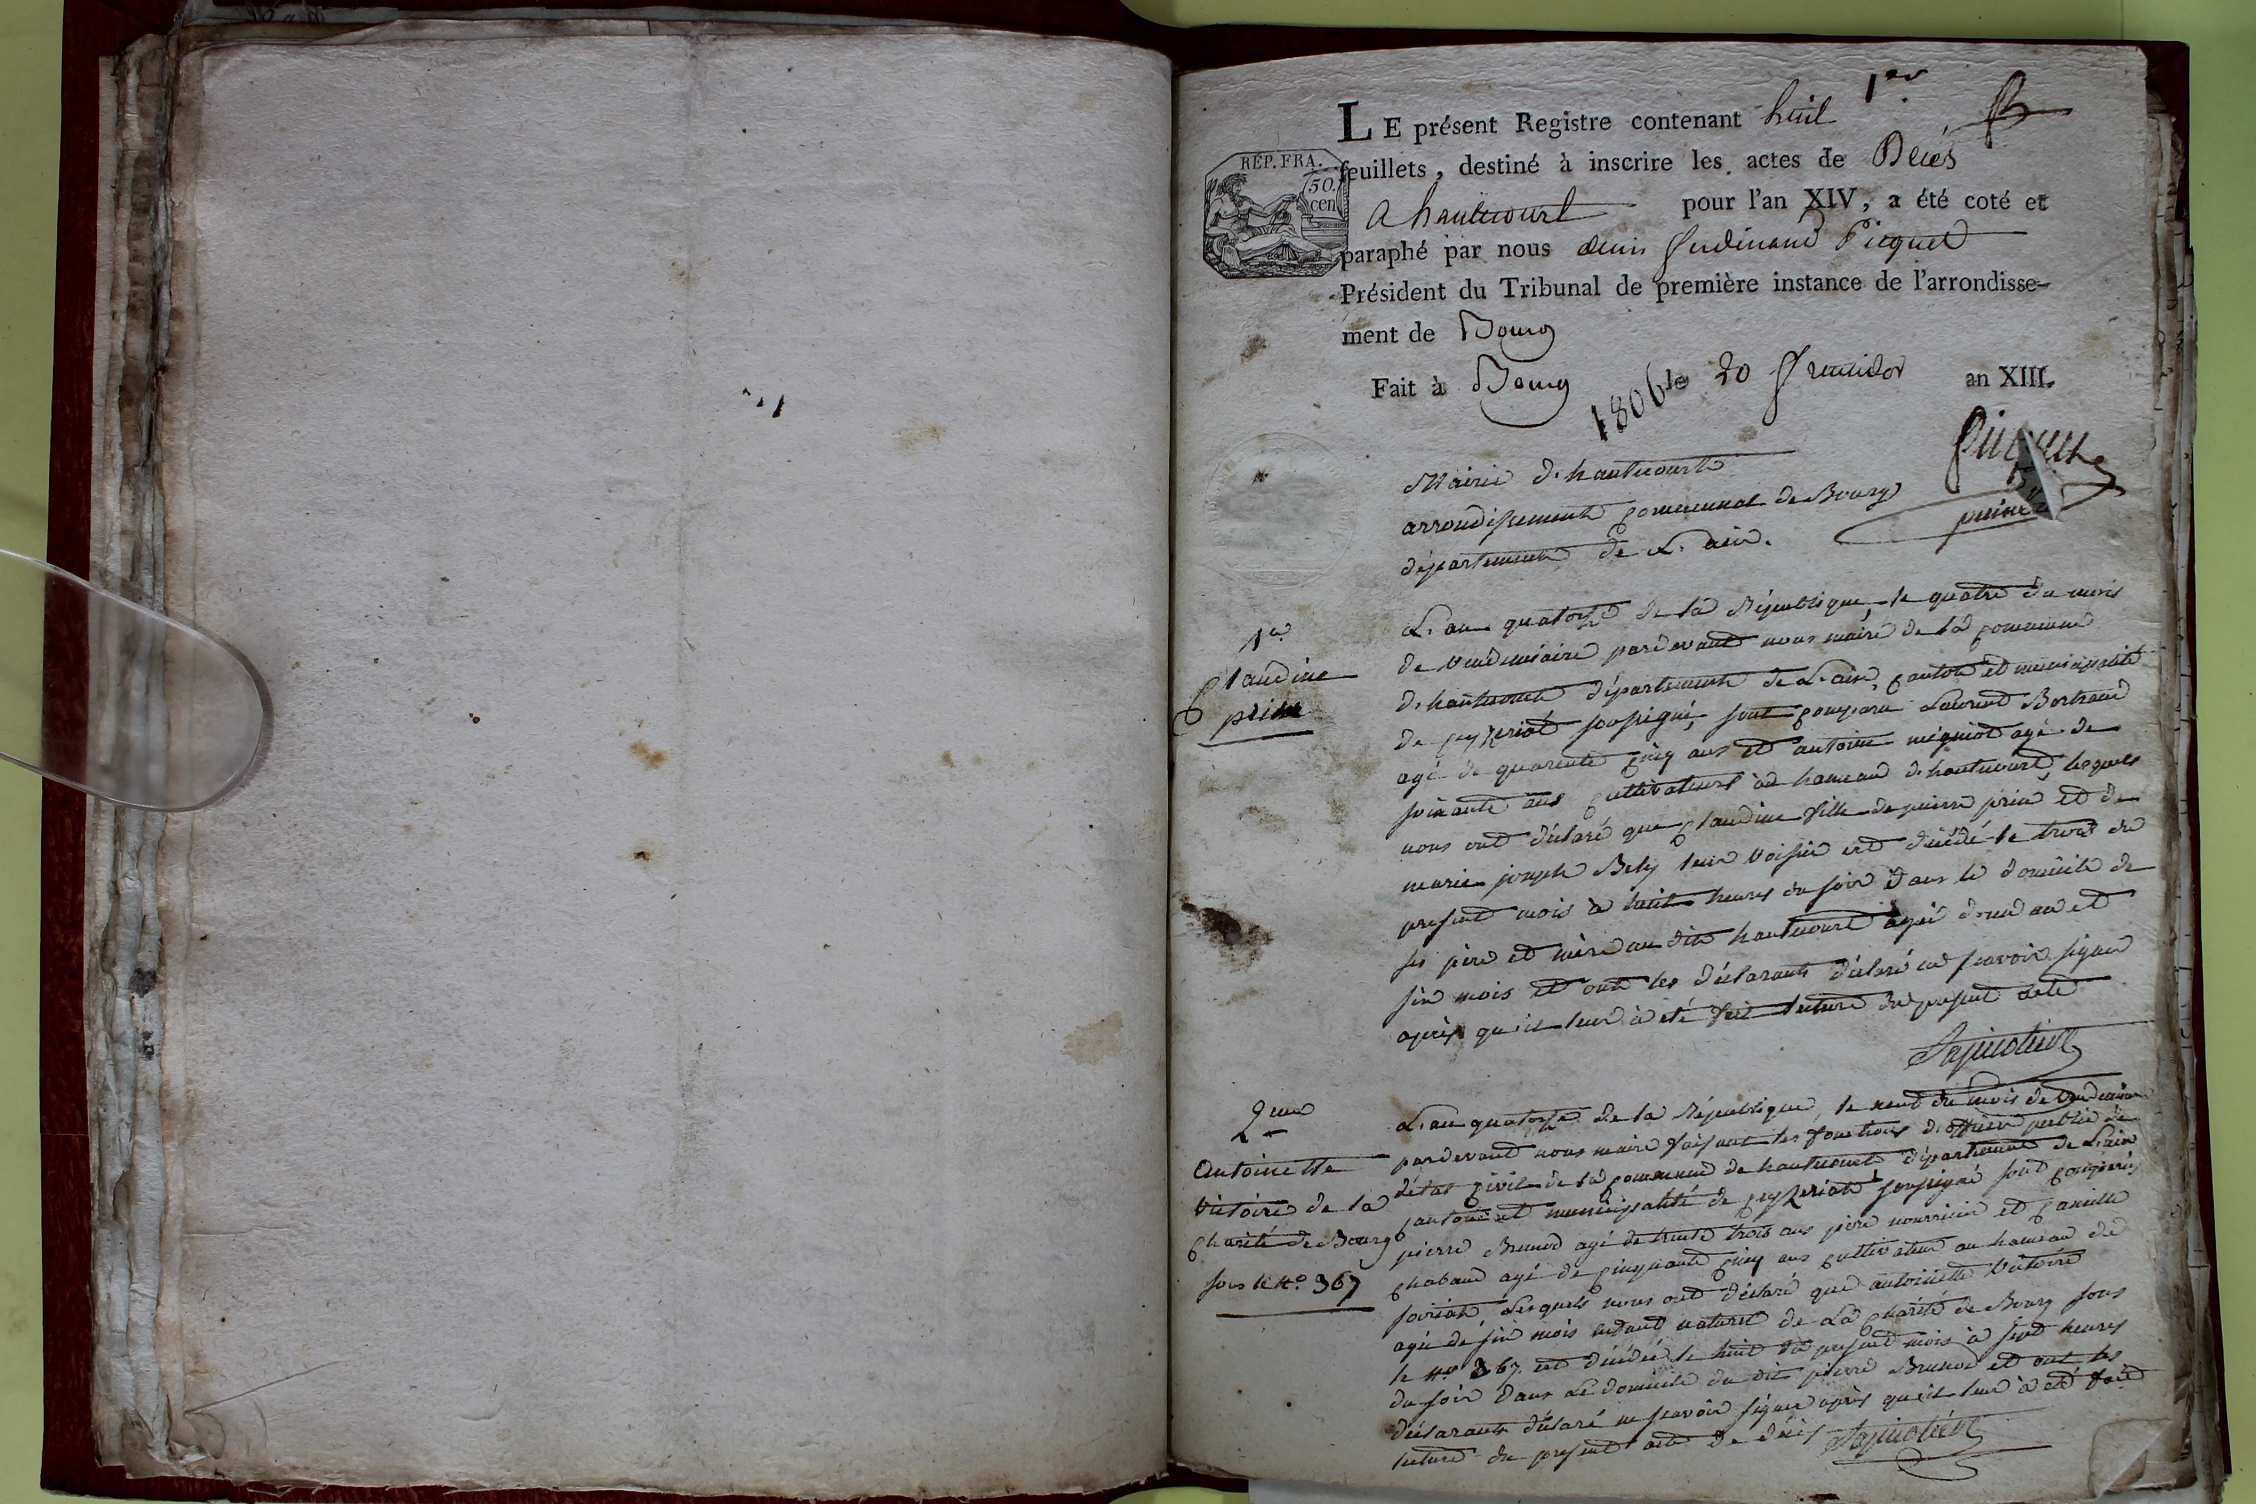 1er
LE présent Registre contenant huit
feuillets, destiné à inscrire les actes de Décès
RÉP. FRA.
50.
cen
a hautecourt pour l'an XIV, a été coté et
paraphé par nous denis ferdinand Picquet
Président du Tribunal de première instance de l'arrondisse-
ment de Bourg
Fait à Bourg le 20 fructidor an XIII.
1806
Picquet
Mairie d'hautecourt
arrondissement communal de Bourg
département de L'ain.
1er
Claudine
prin
L'an quatorze de la République, le quatre du mois
de vendemiaire pardevant nous maire de la commune
d'hautecourt département de L'ain, canton et municipalité
de ceyzeriat soussigné, sont comparu Laurent Bertrand
agé de quarente cinq ans et antoine migniot agé de
soixante ans cultivateurs au hameau d'hautecourt, lesquels
nous ont déclaré que Claudine fille de pierre prin et de
marie joseph Bely leur voisin est décédé le trois du
present mois à huit heures du soir dans le domicile de
ses père et mère au dit hautecourt agée d'un an et
six mois et ont les déclarants déclaré ne scavoir signer
après qu'il leur à été fait lecture du present acte
2me
Antoinette
Victoire de la
Charité de Bourg
sous le No. 367
L'an quatorze de la République, le neuf du mois de vendemiaire
pardevant nous maire faisant les fonctions d'officier public de
l'état civil de la commune de hautecourt département de L'ain
canton et municipalité de ceyzeriat soussigné sont comparus
pierre Brunod agé de trente trois ans père nourricier et Camille
chabaud agé de cinquante cinq ans cultivateur au hameau de
soiriat Lesquels nous ont déclaré que antoinette Victoire
agée de six mois enfant naturel de La Charité de Bourg sous
le No. 367 est décédée le huit du present mois à sept heures
du soir dans Le domicile du dit pierre Brunod et ont les
déclarants déclaré ne scavoir signer après qu'il leur à été fait
lecture du present acte de décès